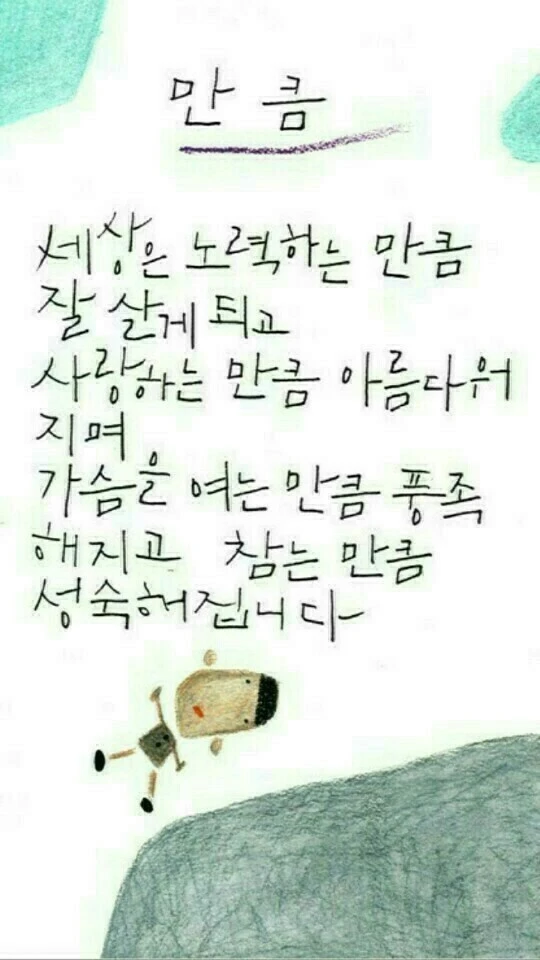 만큼
세상은 노력하는 만큼
잘 살게 되고
사랑하는 만큼 아름다워
지며
가슴을 여는 만큼 풍족
해지고 참는 만큼
성숙해집니다